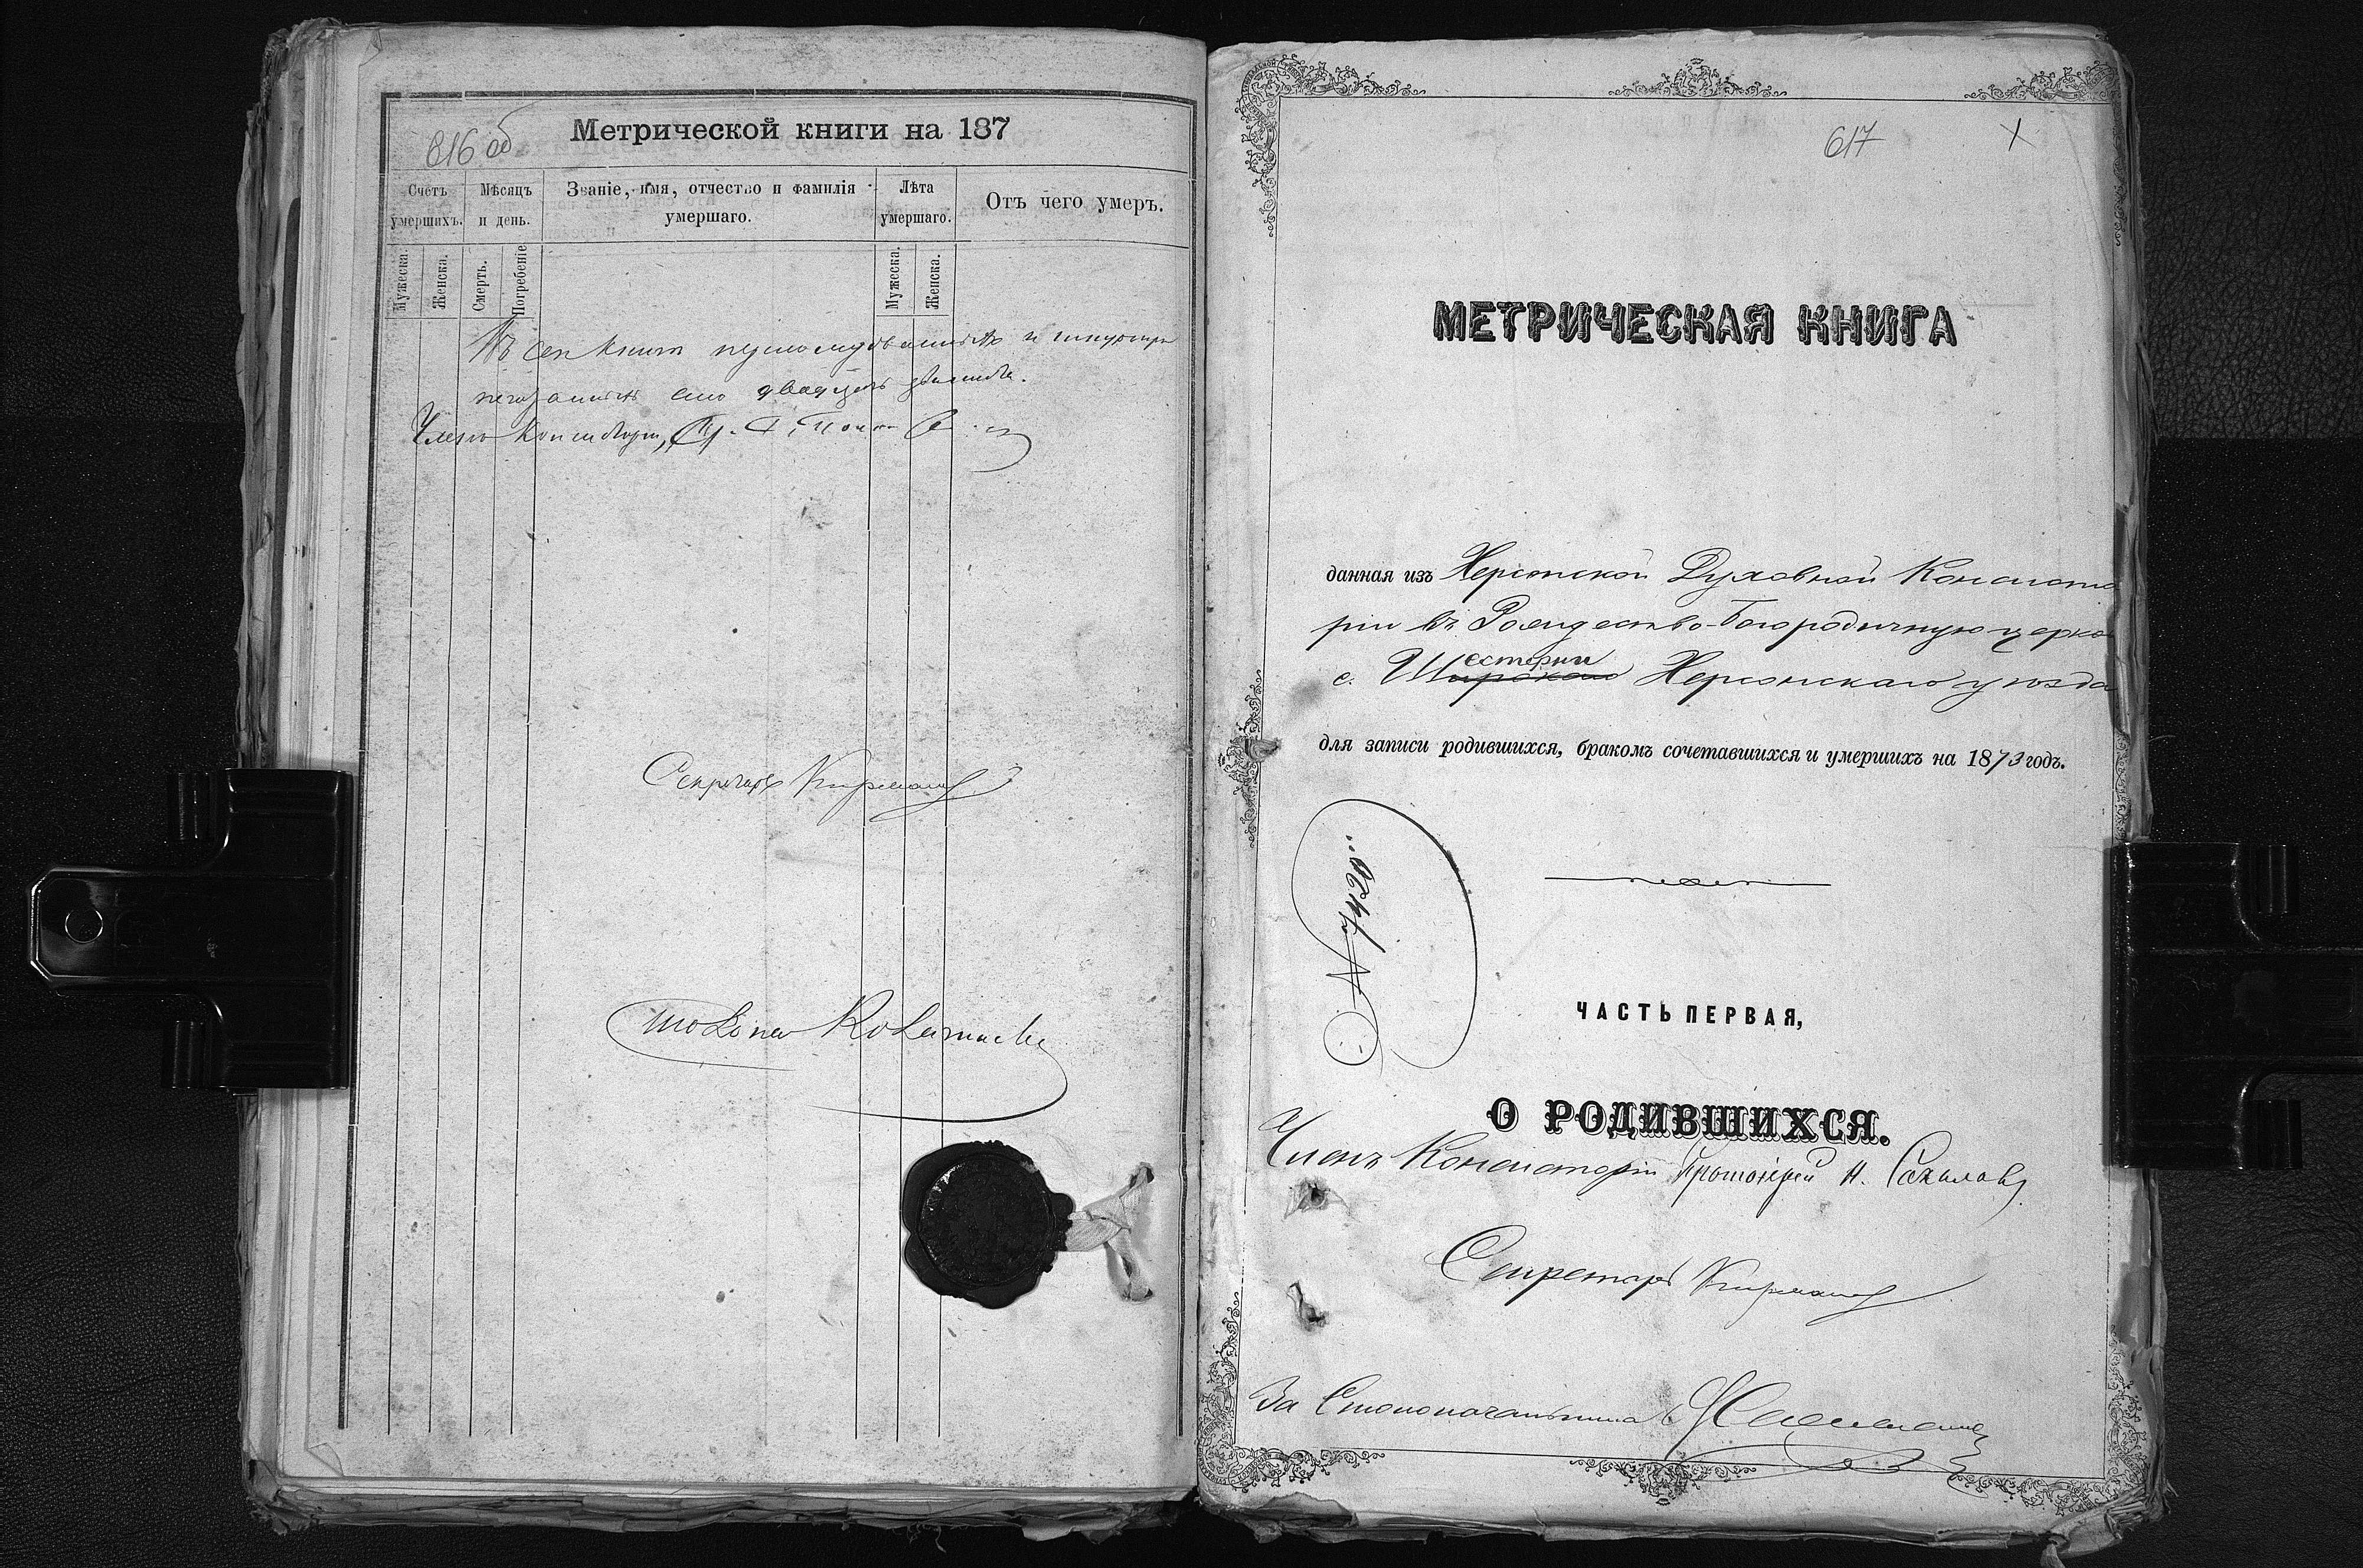 616 об
Метрической книги на 187
Счетъ умершихъ.
Мѣсяцъ и день.
Званіе, имя, отчество и фамилія умершаго.
Лѣта умершаго.
Отъ чего умеръ.
Мужеска.
Женска.
Смерть.
Погребеніе
Мужеска.
Женска.
Въ сей книгѣ
сто двадцать
Членъ Консисторіи,
Секретарь
617
МЕТРИЧЕСКАЯ КНИГА
данная изъ Херсонской Духовной Консисто
ріи въ Рождество-Богородичную церко
с. Шестерни Херсонскаго уѣзда
для записи родившихся, бракомъ сочетавшихся и умершихъ на 1873 годъ.
№ 7420
ЧАСТЬ ПЕРВАЯ,
О РОДИВШИХСЯ.
Членъ Консисторіи Протоіерей Н. Соколовъ
Секретарь
За Столоначальника